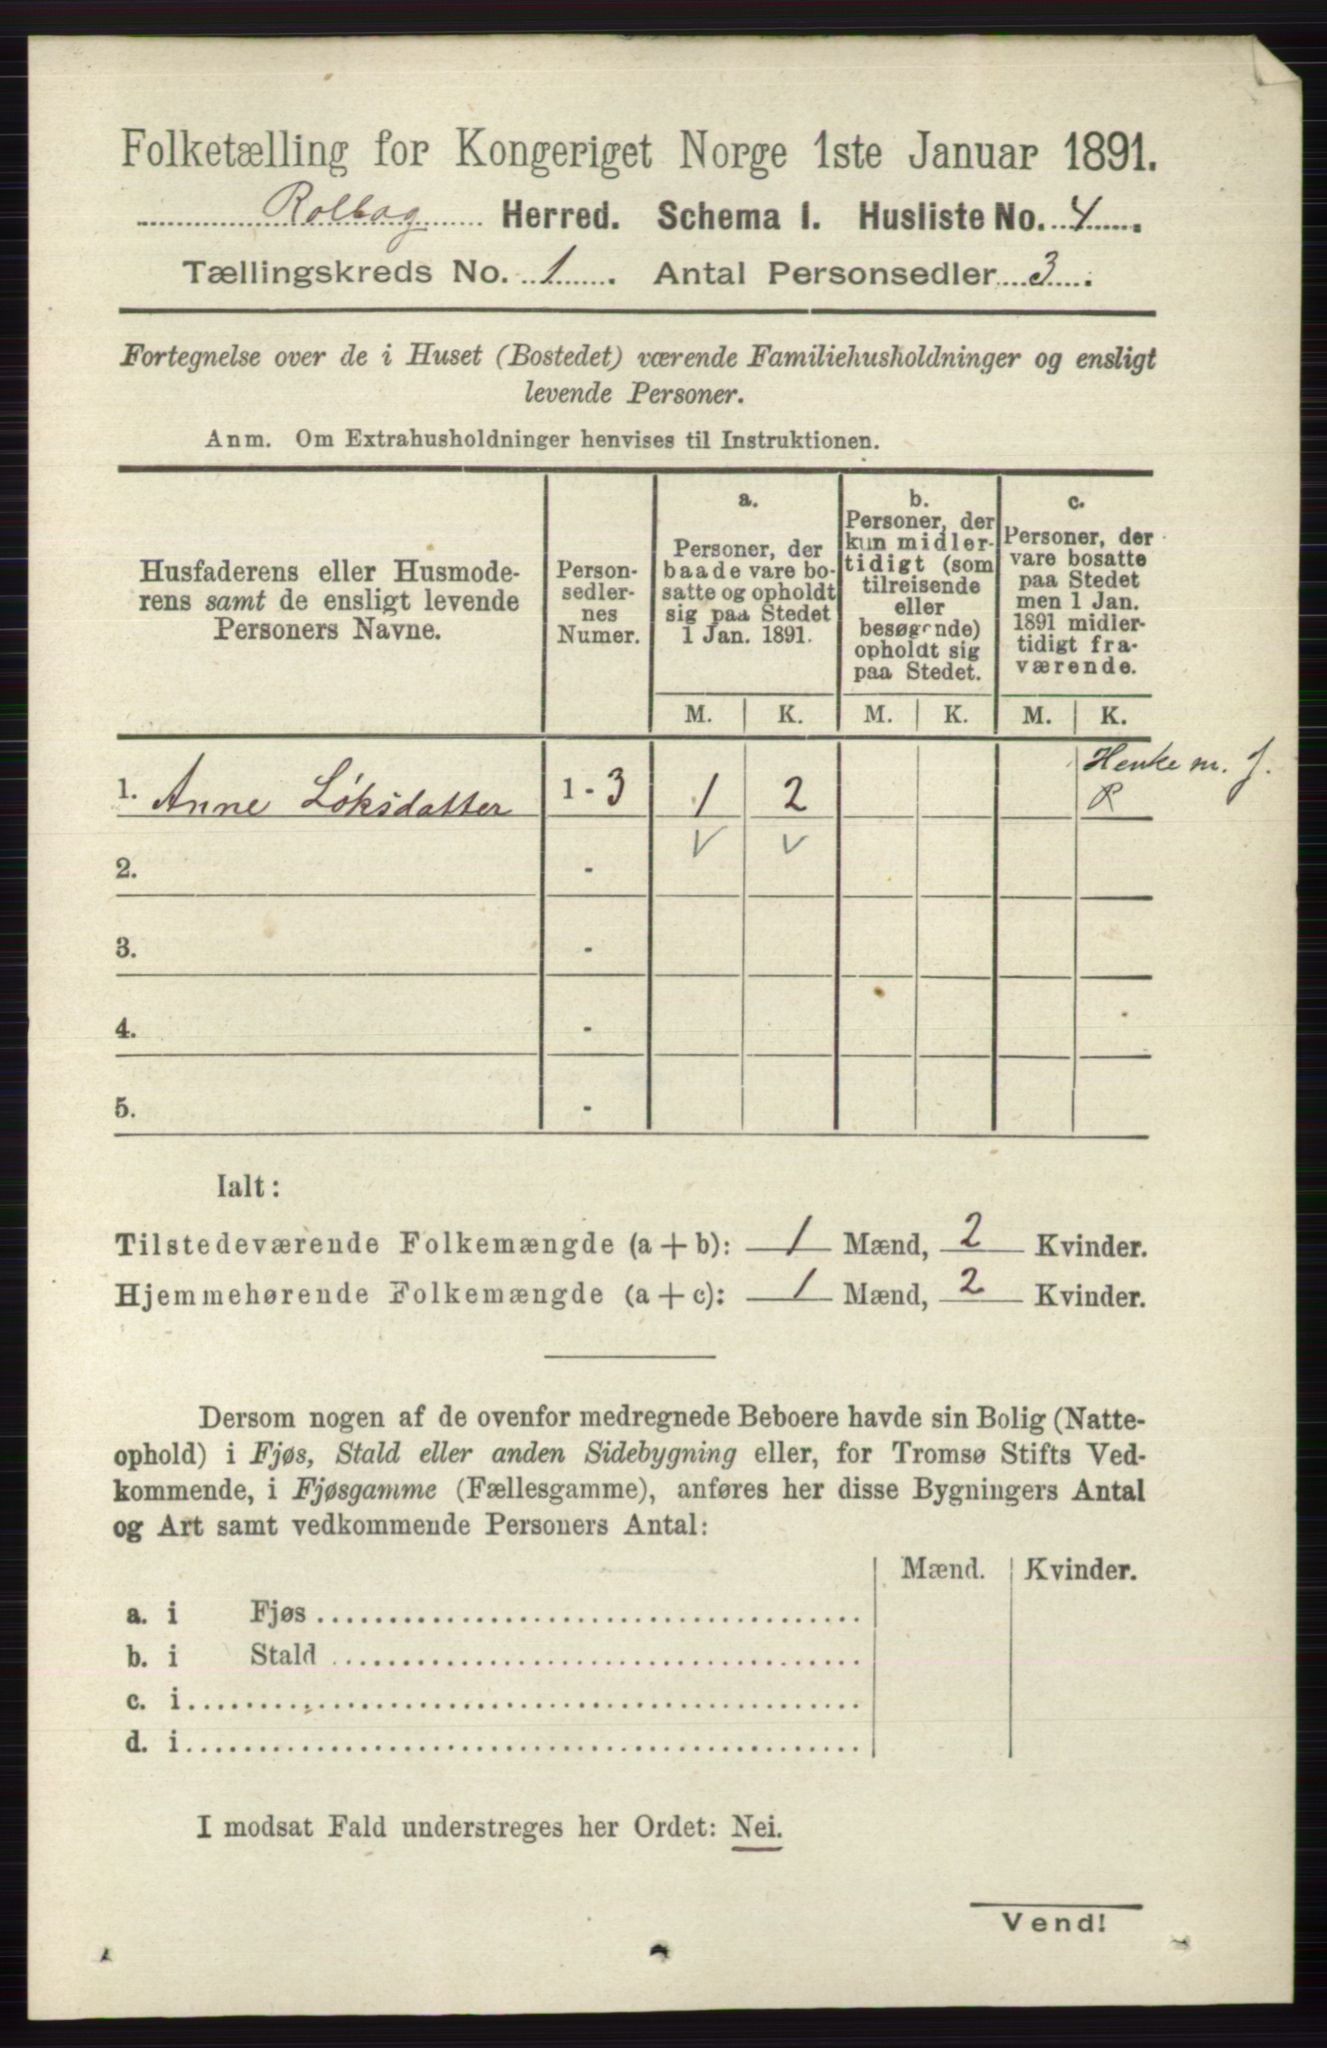 Folketælling for Kongeriget Norge 1ste Januar 1891.
Rollag Herred. Schema 1. Husliste No. 4
Tællingskreds No. 1. Antal Personsedler 3.
Fortegnelse over de i Huset (Bostedet) værende Familiehusholdninger og ensligt
levende Personer.
Anm. Om Extrahusholdninger henvises til Instruktionen.
Husfaderens eller Husmode-
rens samt de ensligt levende
Personers Navne.
Person-
sedler-
nes
Numer.
a.
Personer, der
baade vare bo-
satte og opholdt
sig paa Stedet
1 Jan. 1891.
b.
Personer, der
kun midler-
tidigt (som
tilreisende
eller
besøgende)
opholdt sig
paa Stedet.
c.
Personer, der
vare bosatte
paa Stedet
men 1 Jan.
1891 midler-
tidigt fra-
værende.
M. K. M. K. M. K.
1. Anne 1-3 1 2 m. f.
2. -
3. -
4. -
5. -
Ialt:
Tilstedeværende Folkemængde (a + b): 1 Mænd, 2 Kvinder.
Hjemmehørende Folkemængde (a + c): 1 Mænd, 2 Kvinder.
Dersom nogen af de ovenfor medregnede Beboere havde sin Bolig (Natte-
ophold) i Fjøs, Stald eller anden Sidebygning eller, for Tromsø Stifts Ved-
kommende, i Fjøsgamme (Fællesgamme), anføres her disse Bygningers Antal
og Art samt vedkommende Personers Antal:
Mænd. Kvinder.
a. i Fjøs
b. i Stald
c. i
d. i
I modsat Fald understreges her Ordet: Nei.
Vend!